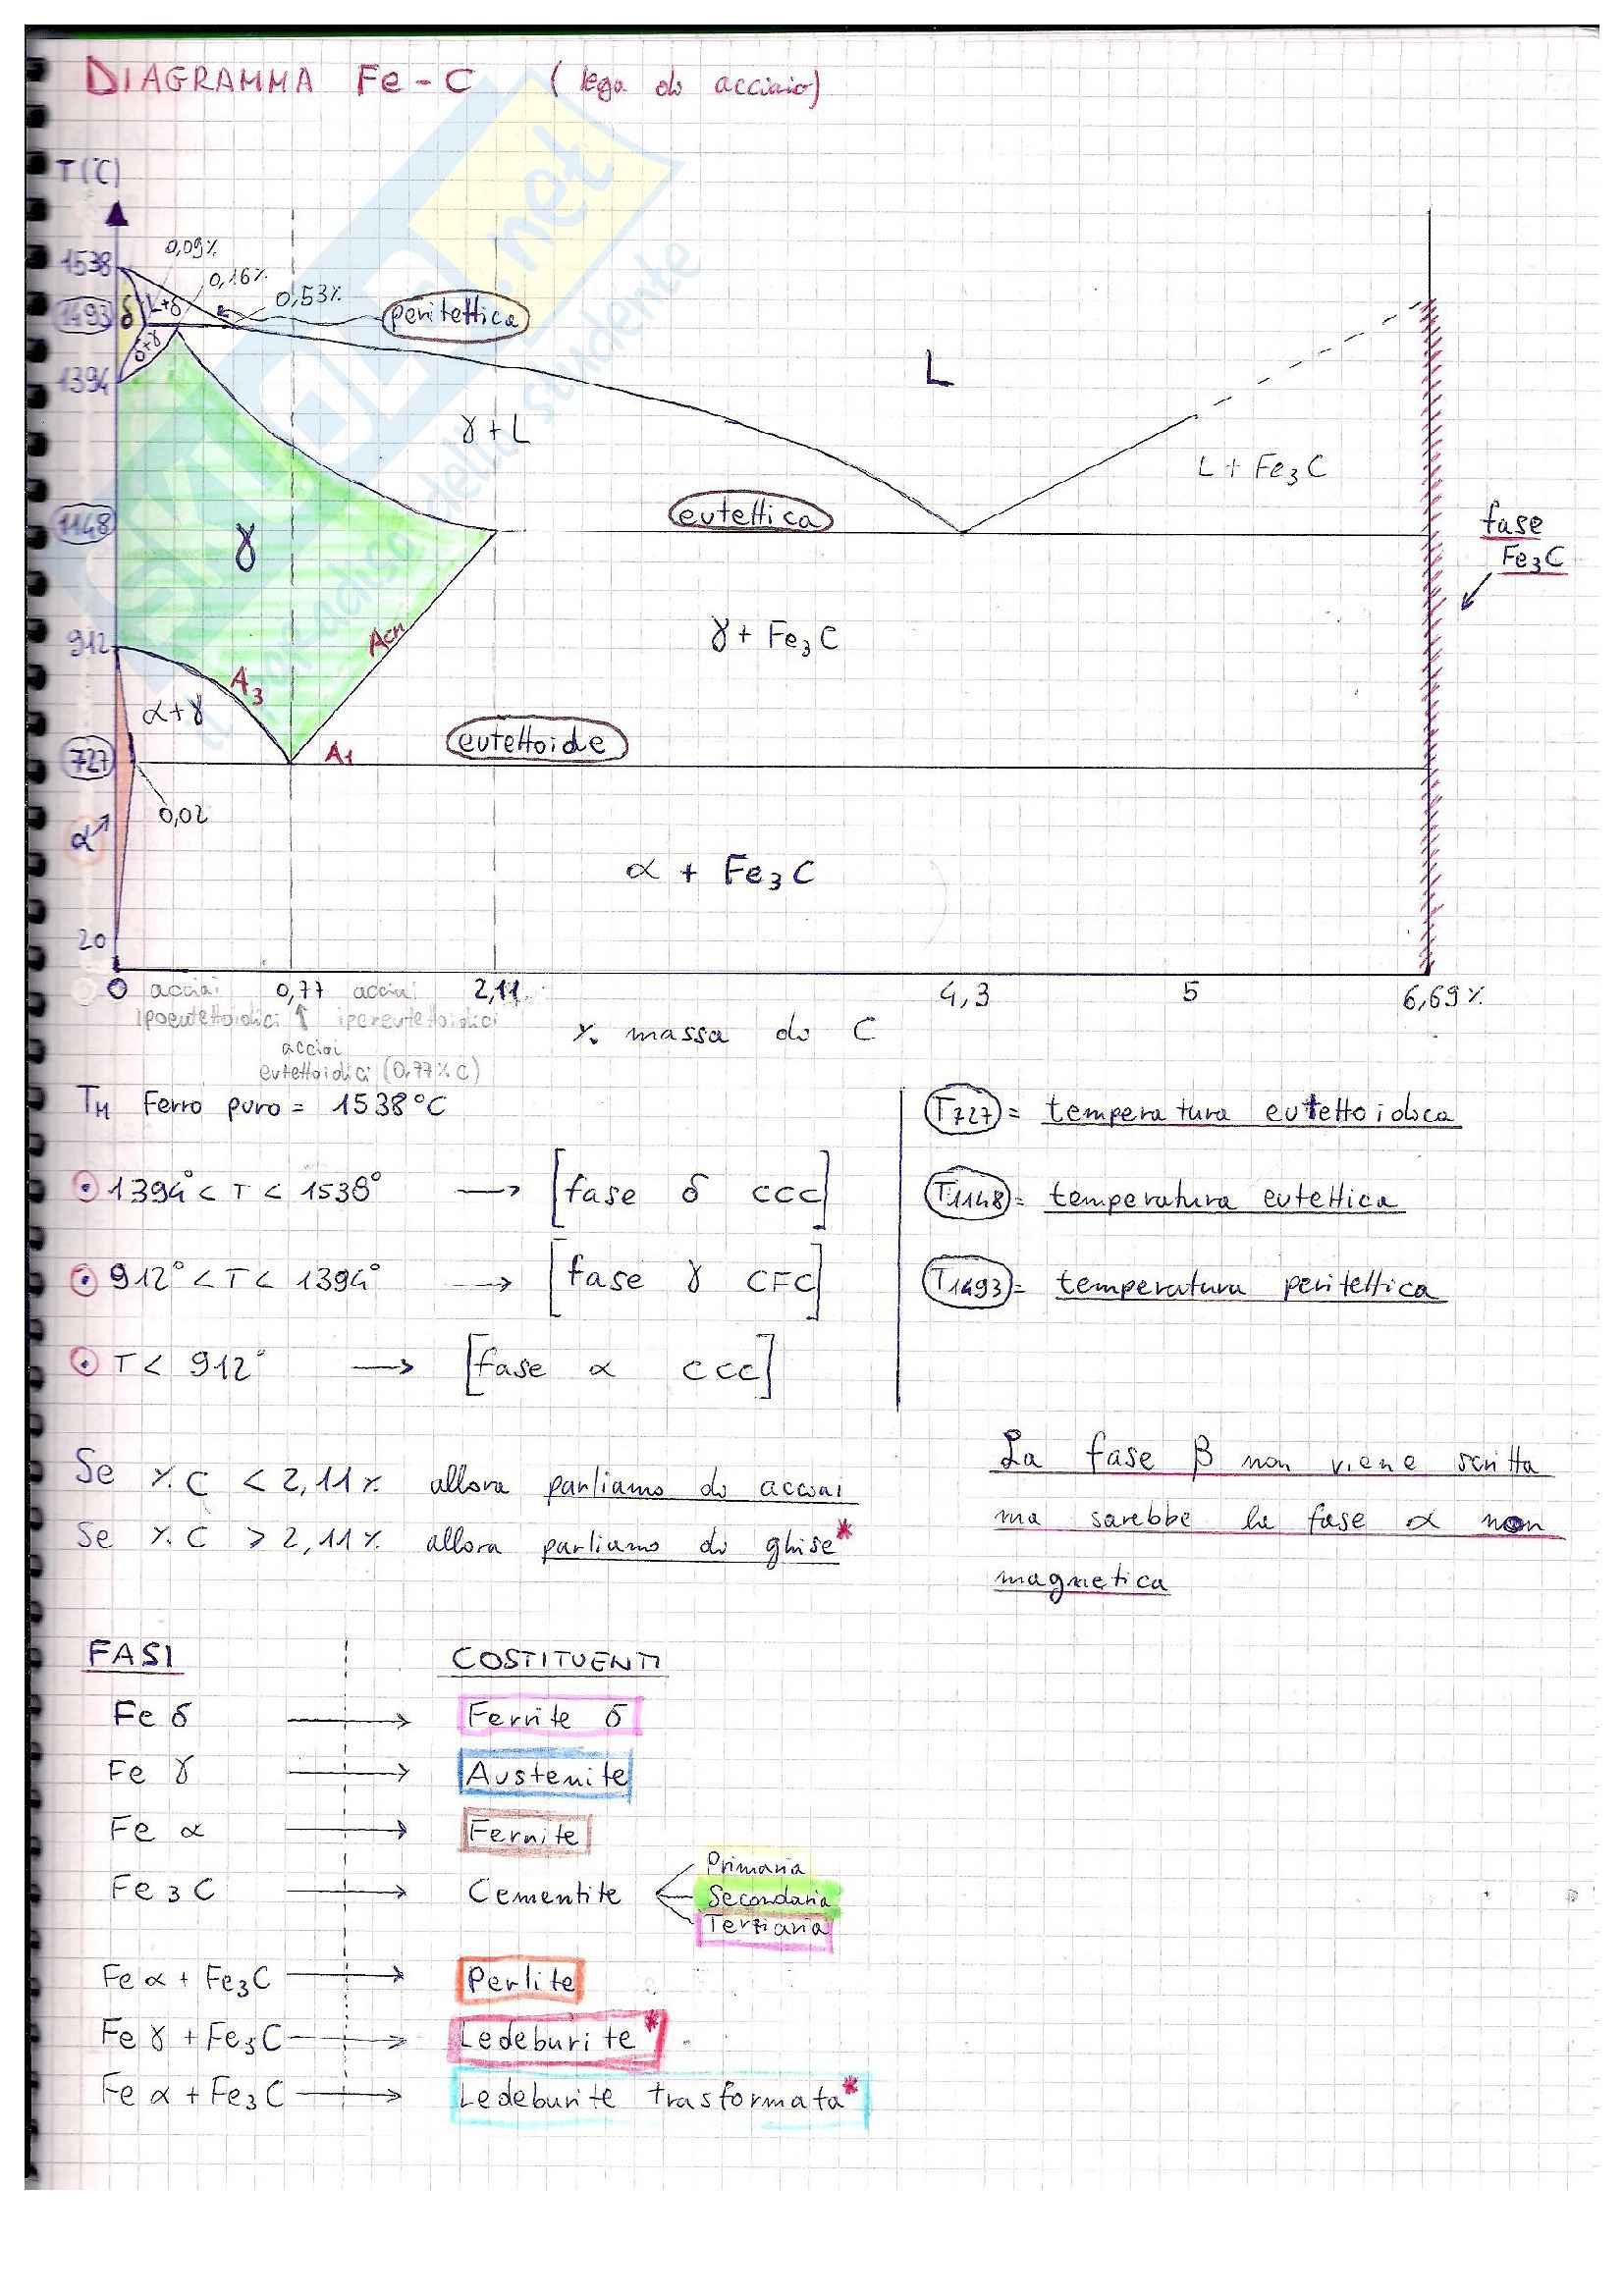 DIAGRAMMA Fe-C (lega di acciaio)
T(°C)
1538
0,09%
0,16%
0,53%
1493
δ
L+δ
peritettica
δ+γ
1394
L
γ+L
L + Fe3C
1148
eutettica
fase
Fe3C
γ
912
Acm
γ + Fe3C
A3
α+γ
727
A1
eutettoide
0,02
α
α + Fe3C
20
0 acciai 0,77 acciai 2,11 4,3 5 6,69%
ipoeutettoidici ipereutettoidici
% massa di C
acciai
eutettoidici (0,77% C)
TM Ferro puro = 1538°C
T727 = temperatura eutettoidica
1394° < T < 1538° → [fase δ CCC]
T1148 = temperatura eutettica
912° < T < 1394° → [fase γ CFC]
T1493 = temperatura peritettica
T < 912° → [fase α CCC]
Se % C < 2,11% allora parliamo di acciai
Se % C > 2,11% allora parliamo di ghise*
La fase β non viene scritta
ma sarebbe la fase α non
magnetica
FASI COSTITUENTI
Fe δ → Ferrite δ
Fe γ → Austenite
Fe α → Ferrite
Fe3C → Cementite
Primaria
Secondaria
Terziaria
Fe α + Fe3C → Perlite
Fe γ + Fe3C → Ledeburite*
Fe α + Fe3C → Ledeburite trasformata*
SKUOLA.net
il paradiso dello studente